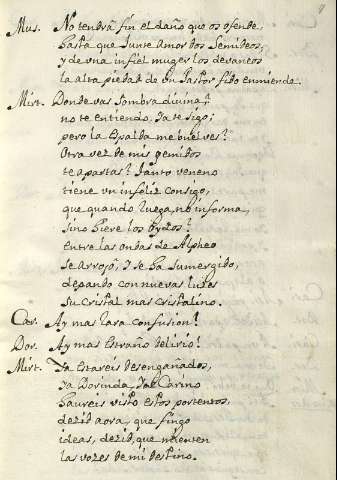 Mus. No tendrã fin el daño que os ofende,
hasta que Junte Amor dos Semideos,
y de una infiel muger los devaneos
la alta piedad de un Pastor fido enmiende.
Mirt. Donde vas sombra divina?
no te entiendo, Ya te sigo;
pero la espalda me buelves?
Otra vez de mis gemidos
te apartas? Tanto veneno
tiene un infeliz consigo,
que quando ruega, no informa,
sino hiere los oydos?
Entre las ondas de Alpheo
se arrojò, Y se ha sumergido,
dexando con nuevas luzes
su cristal mas cristalino.
Car. Ay mas rara confusion!
Dor. Ay mas estraño delirio!
Mirt. Ya estareis desengañados,
Ya Dorinda, Ya Carino
haureis visto estos portentos,
dezid aora, que finjo
ideas, dezid, que mienten
las vozes de mi destino.